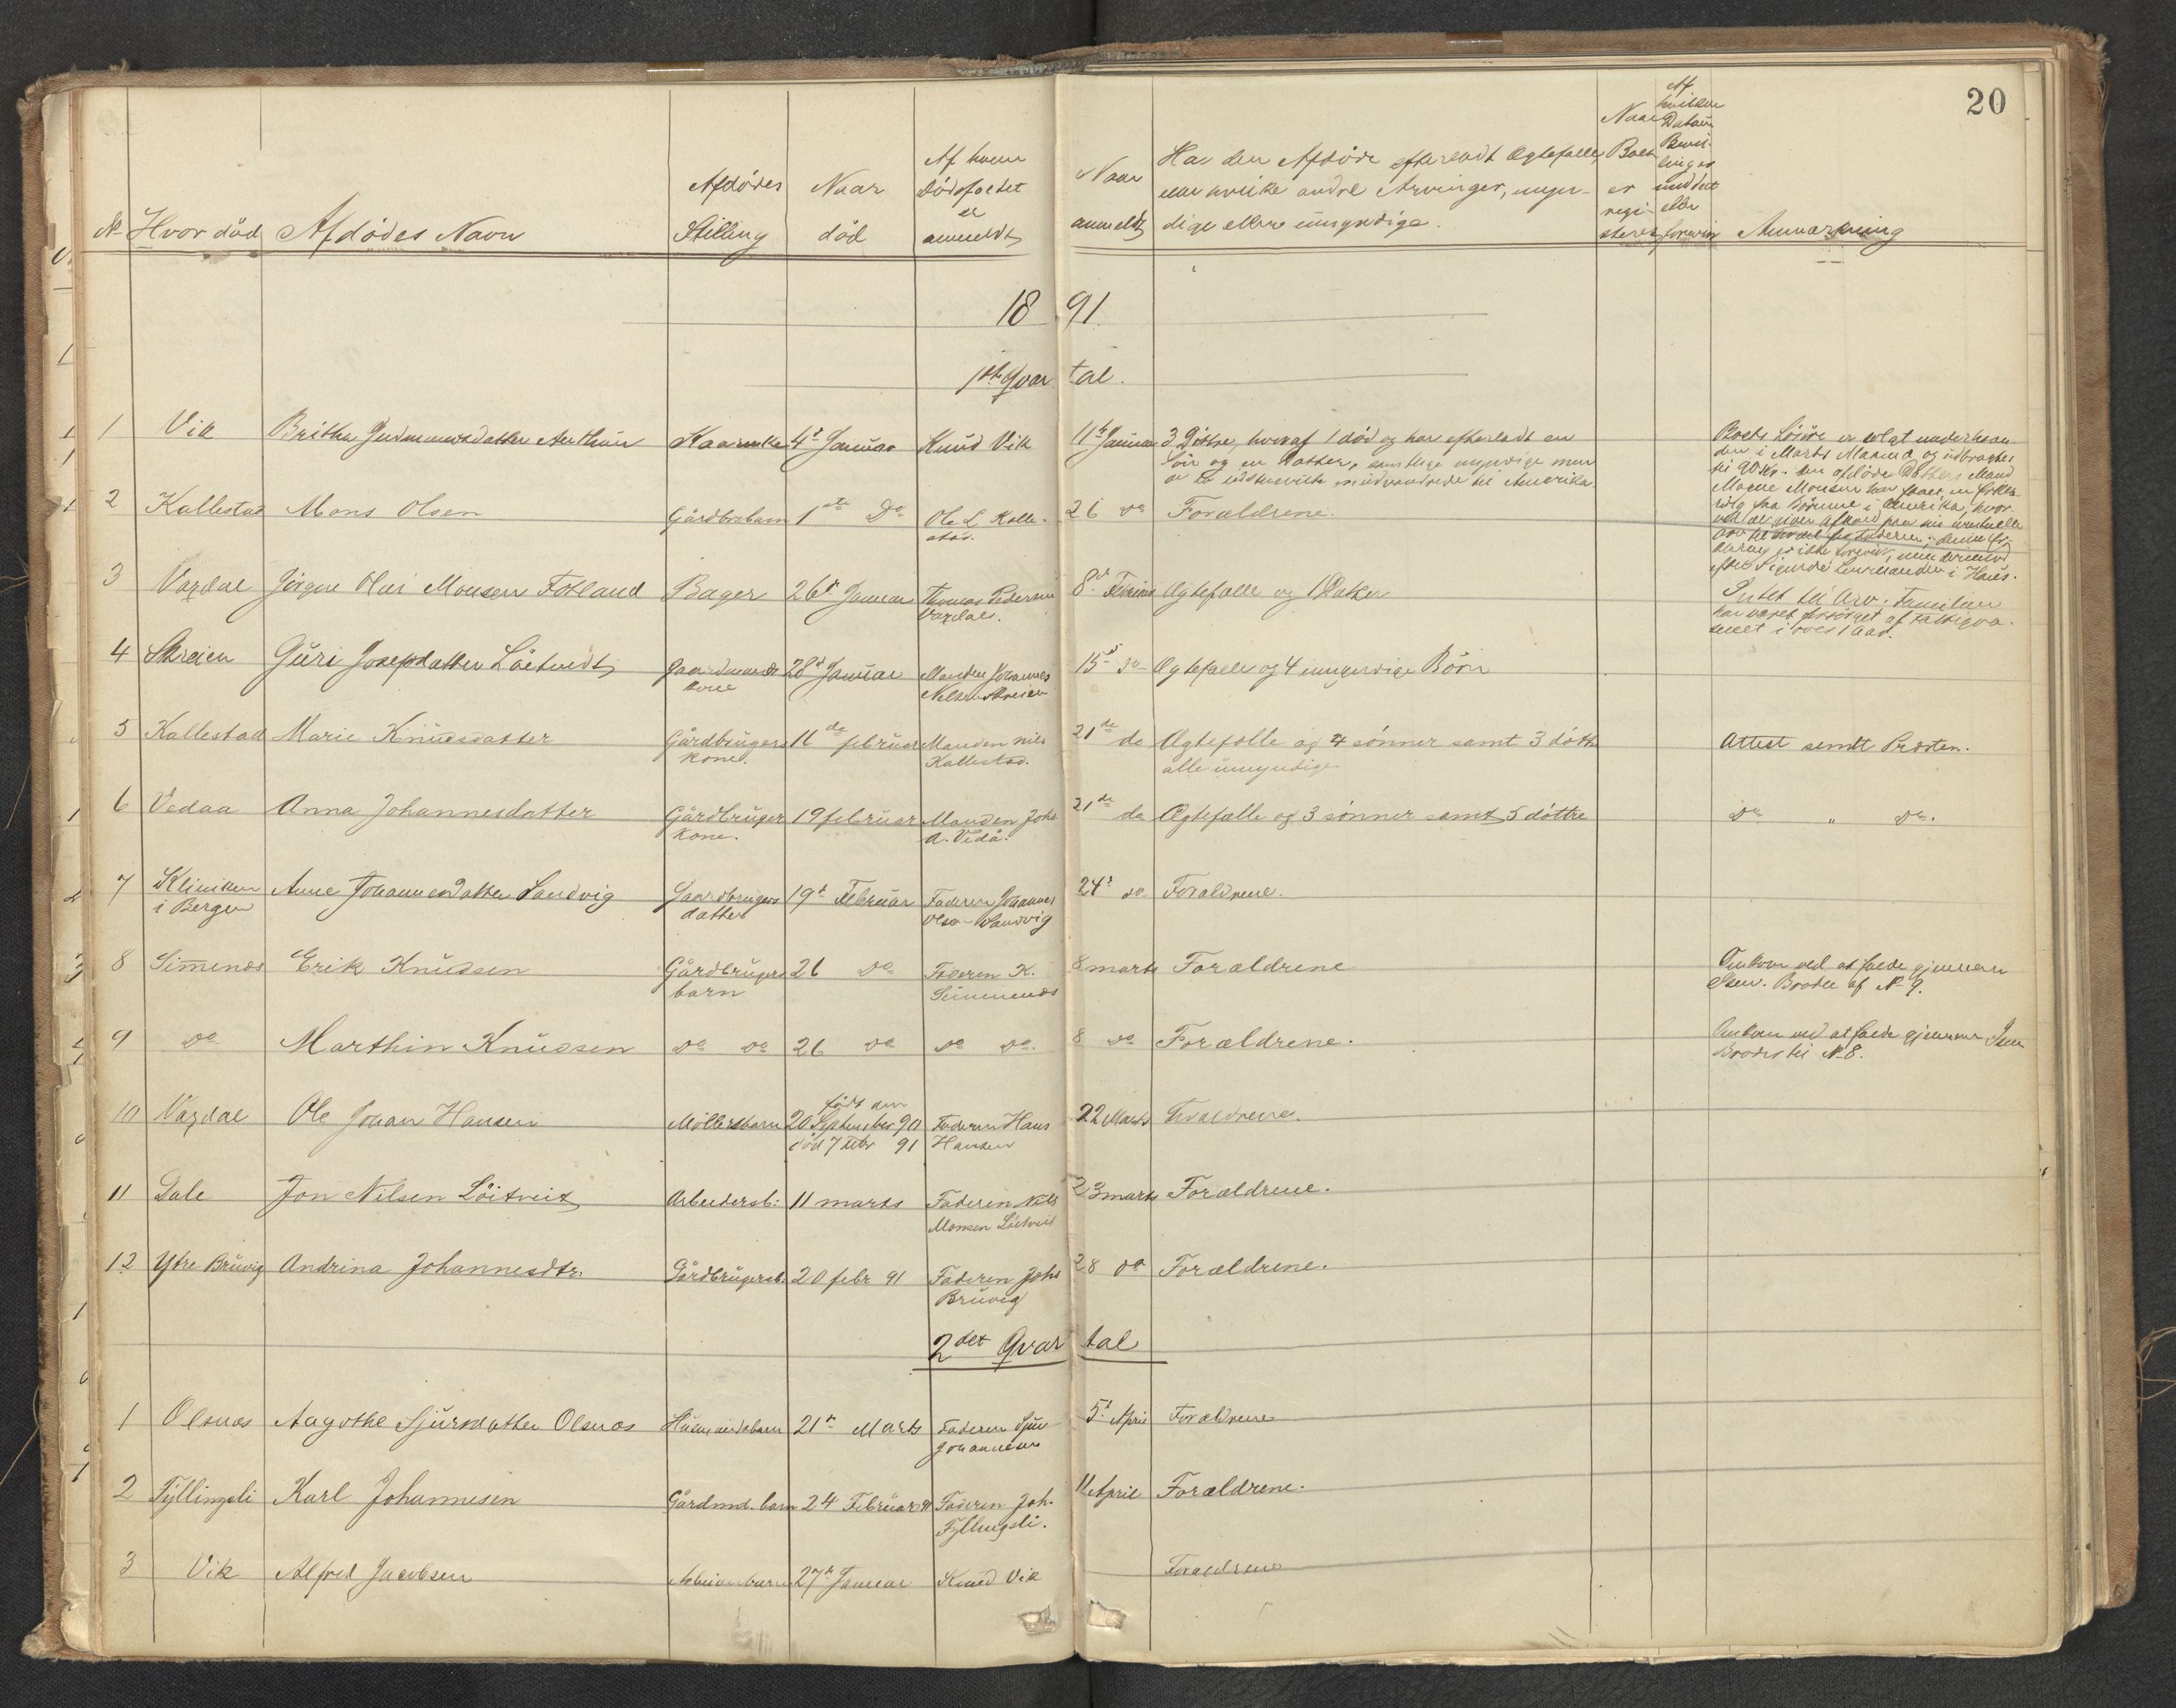 20
No Hvor död Afdödes Navn Afdödes Stilling Naar död Af hvem Dödsfaldet er anmeldt Naar anmeldt Har den Afdöde efterladt Ægtefælle, eller hvilke andre Arvinger, myndige eller umyndige. Naar Boet er registeret Af hvilken Datum Bevilling er meddelt eller Anmærkning
1891.
1ste Qvartal.
1 Vik Britha 4de Januar Knud Vik 11te Januar 3 Döttre, hvoraf 1 död og har efterladt en
Sön og en Datter, samtlige myndige men
er udvandrede til Amerika
Boets Lösöre er solgt underhaan
den i Marts Maaned og udbragtes
til 90 Kr. Den afdöde Datters Mand
Magne Monsen har faaet en
fra Börnene i Amerika, hvor
2 Kallestad Mons Olsen Gårdbrbarn 1ste Do Ole L. Kalle-
stad. 26 do Forældrene.
3 Vaxdal Jörgen Olai Monsen Fotland Bager 26de Januar Thomas Pedersen
Vaxdal. 8de Februar Ægtefælle og 1 Datter
Intet til Arv. Familien
har været forsörget af Fattigvæ-
senet i over 1 Aar.
4 Skreien Guri Josepsdatter Löetvedt Gaardmands
kone 28de Januar Manden Johannes
Nilsen Skreien 15de do Ægtefælle og 4 umyndige Börn
5 Kallestad Marie Knudsdatter Gårdbrugers
kone. 11de februar Manden Nils
Kallestad. 21de do Ægtefælle og 4 sönner samt 3 döttre
alle umyndige Attest sendt Præsten.
6 Vedaa Anna Johannesdatter Gårdbruger
kone. 19 februar Manden Johs
A. Vedå. 21de do Ægtefælle og 3 sönner samt 5 döttre Do " Do.
7 Kliniken
i Bergen Anne Johannesdatter Sandvig Gaardbrugers
datter 19de Februar Faderen Johannes
Olsen Sandvig 24de do Forældrene.
8 Simenes Erik Knudsen Gårdbrugers
barn 26 Do Faderen K.
Simmenæs 8 marts Forældrene Omkom ved at falde gjennem
Isen. Broder af No 9.
9 Do Marthin Knudsen Do Do 26 Do Do Do. 8 do Forældrene. Omkom ved at falde gjennem Isen
Broder til No 8.
10 Vaxdal Ole Johan Hansen Möllersbarn född den
20 September 90
död 7 Febr 91 Faderen Hans
Hansen 22 Marts Forældrene.
11 Dale Jon Nilsen Löitveit Arbeidersb: 11 marts Faderen Nils
Monsen Löitveit 23 marts Forældrene.
12 Ytre Bruvig Andrina Johannesdtr: Gårdbrugersb. 20 febr 91 Faderen Johs
Bruvig 28 do Forældrene.
2det Qvartal
1 Olsnæs Aagothe Sjursdatter Olsnæs Husmandsbarn 21de Marts Faderen Sjur
Johannesen 5te April Forældrene
2 Fyllingsli Karl Johannesen Gårdmd. barn 24 Februar 91 Faderen Joh.
Fyllingsli. 11 April Forældrene.
3 Vik Alfred Jacobsen 27de Januar Knud Vik Forældrene